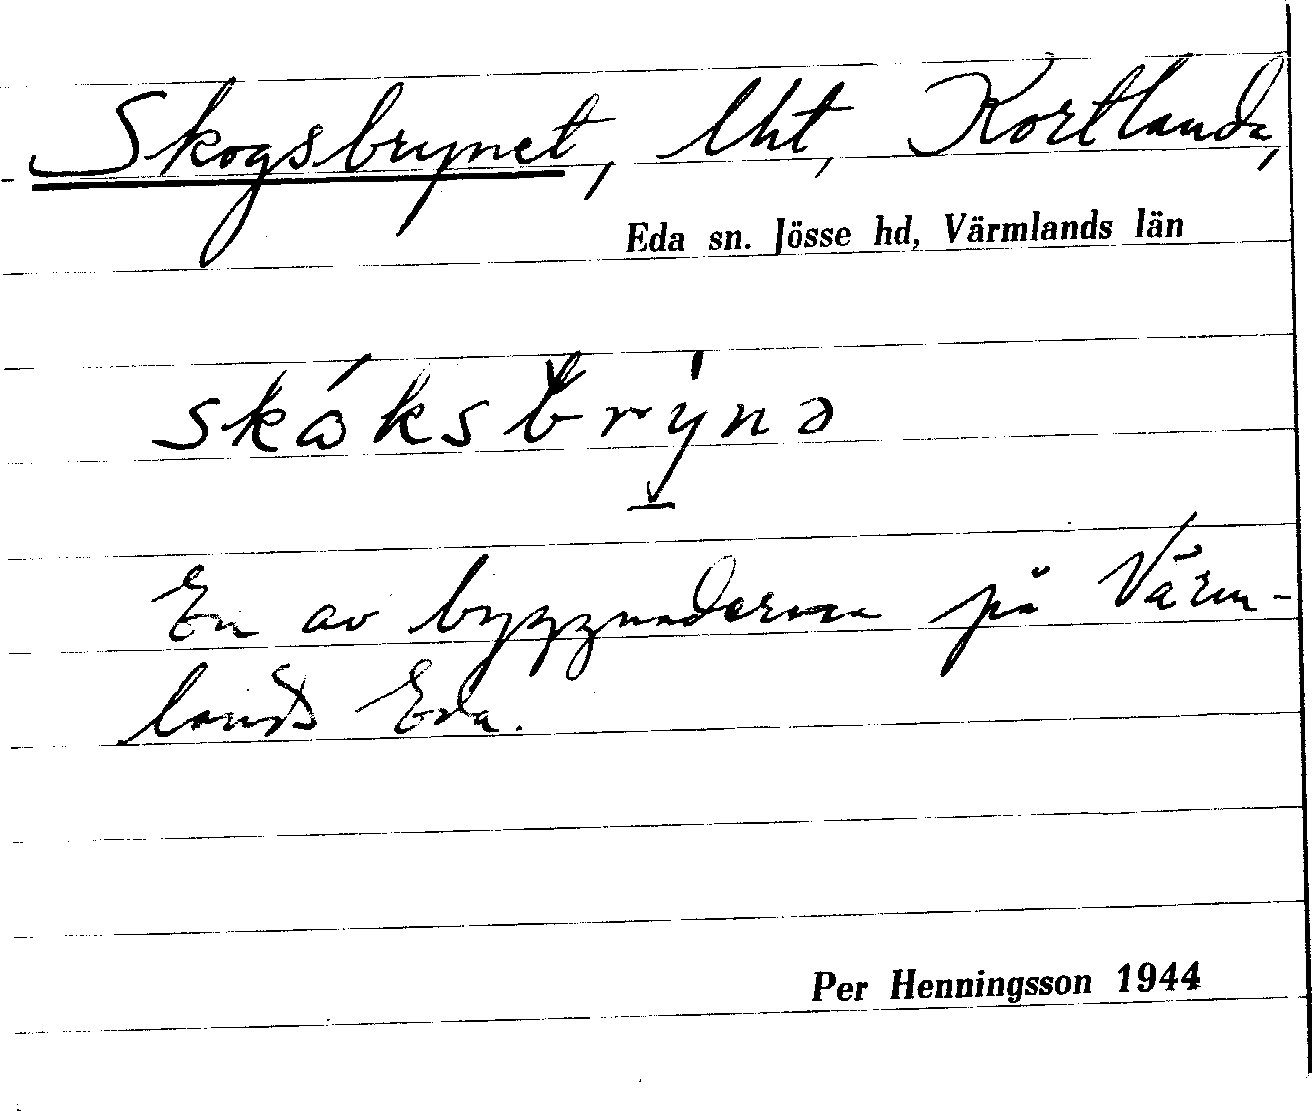 Skogsbrynet, lht, Kortlanda,
Eda sn. Jösse hd, Värmlands län
skåksbrynə
En av byggnaderna på Värm-
lands Eda.
Per Henningsson 1944